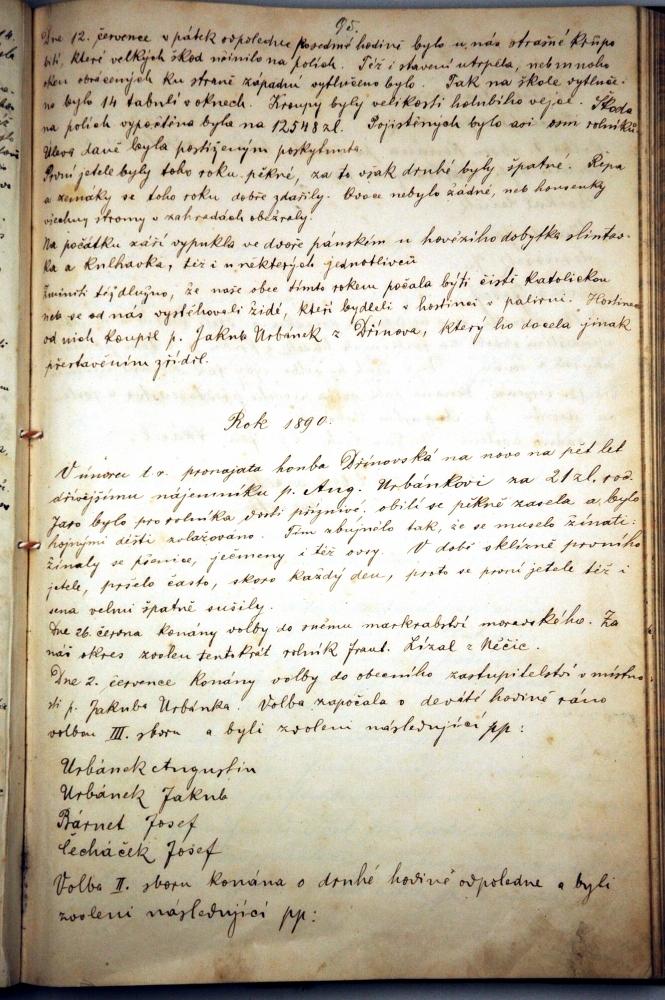 95.
Dne 12. července v pátek odpoledne po sedmé hodině bylo u nás strašné krupo
bití, které velkých škod učinilo na polích. Též i stavení utrpěla, neb mnoho
oken obrácených ku straně západní vytlučeno bylo. Tak na škole vytluče-
no bylo 14 tabulí v oknech. Kroupy byly velikosti holubího vejce. Škoda
na polích vypočtěna byla na 12548 zl. Pojištěných bylo asi osm rolníků.
Úleva daně byla postiženým poskytnuta.
První jetele byly toho roku pěkné, za to však druhé byly špatné. Řepa
a zemáky se toho roku dobře zdařily. Ovoce nebylo žádné, neb housenky
všechny stromy v zahradách obežraly.
Na počátku září vypukla ve dvoře panském u hovězího dobytka slintav-
ka a kulhavka, též i u některých jednotlivců
Zmíniti též dlužno, že naše obec tímto rokem počala býti čistě katolickou
neb se od nás vystěhovali židé, kteří bydleli v hostinci v palírni. Hostinec
od nich koupil p. Jakub Urbánek z Dřínova, který ho docela jinak
přestavěním zřídil.
Rok 1890.
V únoru t. r. pronajata honba Dřínovská na novo na pět let
dřívějšímu nájemníku p. Aug. Urbánkovi za 21 zl. rod.
Jaro bylo pro rolníka dosti příznivé, obilí se pěkně zasela a bylo
hojnými dešti zvlažováno. Tím zbujnělo tak, že se muselo žínati:
žínaly se pšenice, ječmeny i též ovsy. V době sklizně prvního
jetele, pršelo často, skoro každý den, proto se první jetele též i
sena velmi špatně sušily.
Dne 26. června konány volby do sněmu markrabství moravského. Za
náš okres zvolen tentokrát rolník Frant. Lízal z Něčic.
Dne 2. července konány volby do obecního zastupitelství v místno-
sti p. Jakuba Urbánka. Volba započala o deváté hodině ráno
volbou III. sboru a byli zvoleni následující pp:
Urbánek Augustin
Urbánek Jakub
Bárnet Josef
Čecháček Josef
Volba II. sboru konána o druhé hodině odpoledne a byli
zvoleni následující pp: